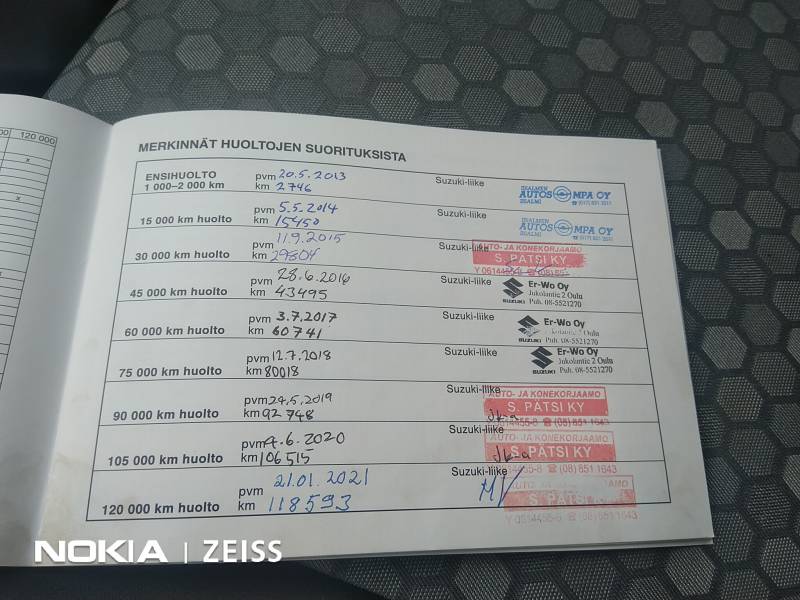 00 120 000
x
x
x
MERKINNÄT HUOLTOJEN SUORITUKSISTA
ENSIHUOLTO pvm 20.5.2013 Suzuki-liike
1 000–2 000 km km 2746
IISALMEN
AUTOS MPA OY
IISALMI
15 000 km huolto pvm 5.5.2014 Suzuki-liike
km 15450
IISALMEN
AUTOS MPA OY
IISALMI
30 000 km huolto pvm 11.9.2015 Suzuki-liike
km 29804
AUTO- JA KONEKORJAAMO
S. PATSI KY
45 000 km huolto pvm 28.6.2016 Suzuki-liike
km 43495
SUZUKI
Er-Wo Oy
Jukolantie 2 Oulu
Puh. 08-5521270
60 000 km huolto pvm 3.7.2017 Suzuki-liike
km 60741
SUZUKI
Er-Wo Oy
2 Oulu
Puh. 08-5521270
75 000 km huolto pvm 12.7.2018 Suzuki-liike
km 80018
SUZUKI
Er-Wo Oy
Jukolantie 2 Oulu
Puh. 08-5521270
90 000 km huolto pvm 24.5.2019 Suzuki-liike
km 92 748
AUTO- JA KONEKORJAAMO
S. PATSI KY
(08) 851 1643
105 000 km huolto pvm 4.6.2020 Suzuki-liike
km 106515
AUTO- JA KONEKORJAAMO
S. PATSI KY
(08) 851 1643
120 000 km huolto pvm 21.01.2021 Suzuki-liike
km 118593
MV
AUTO- JA KONEKORJAAMO
S. PATSI KY
Y 0614455-8 ☎ (08) 851 1643
NOKIA | ZEISS